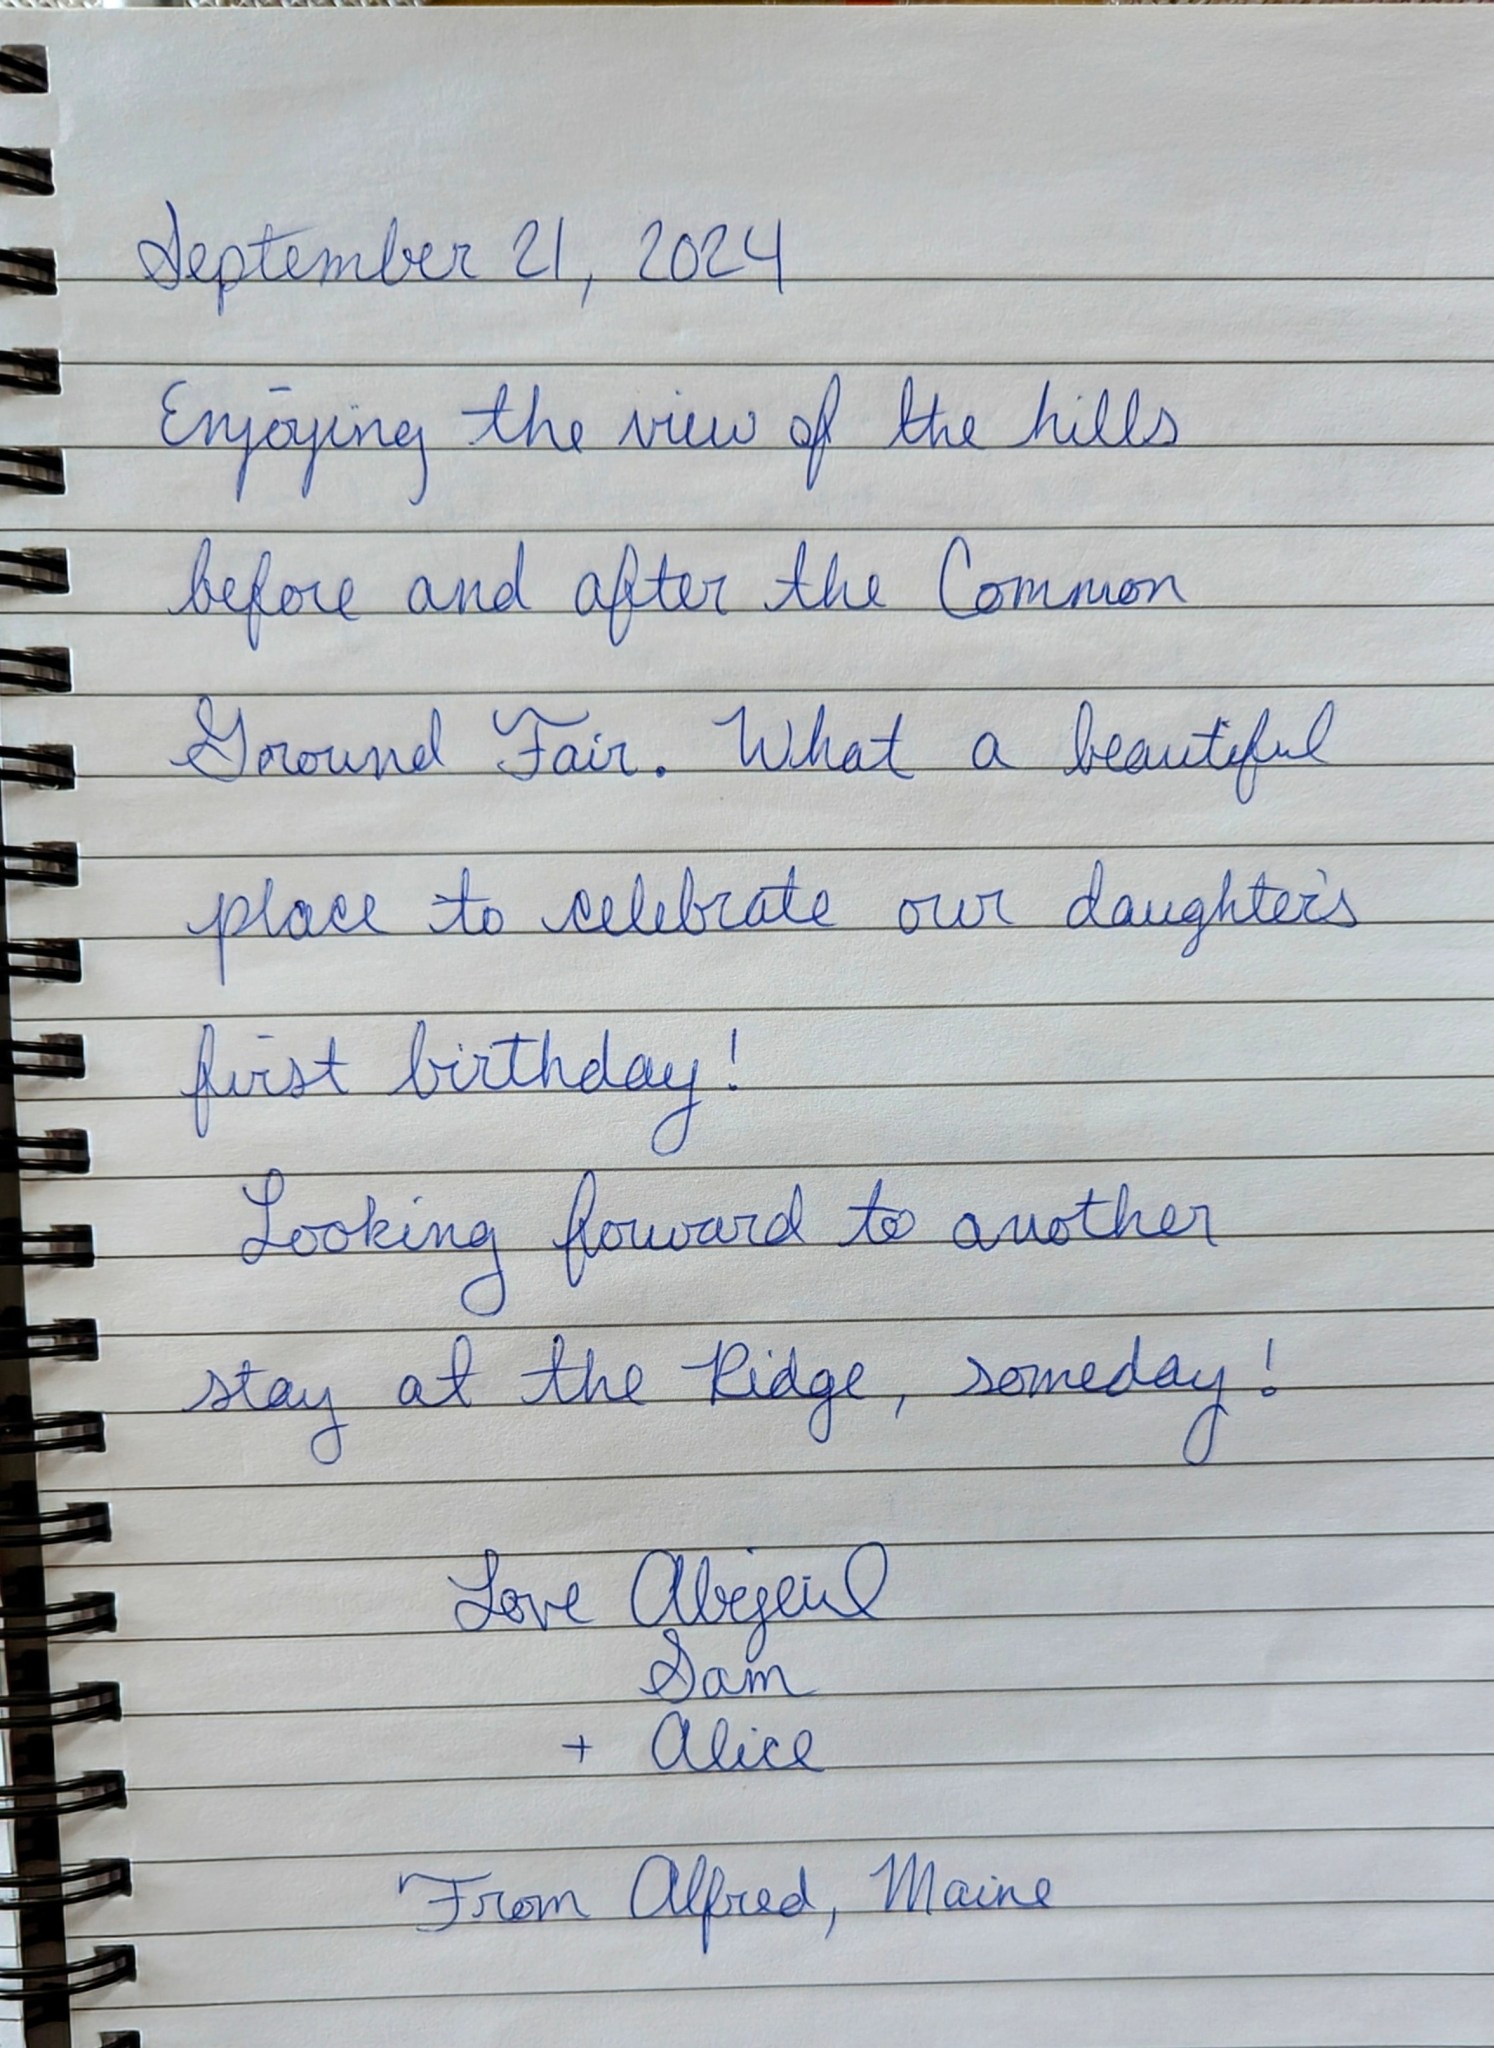 September 21, 2024
Enjoying the view of the hills
before and after the Common
Ground Fair. What a beautiful
place to celebrate our daughter's
first birthday!
Looking forward to another
stay at the Ridge, someday!
Love Abigail
Sam
+ Alice
From Alfred, Maine